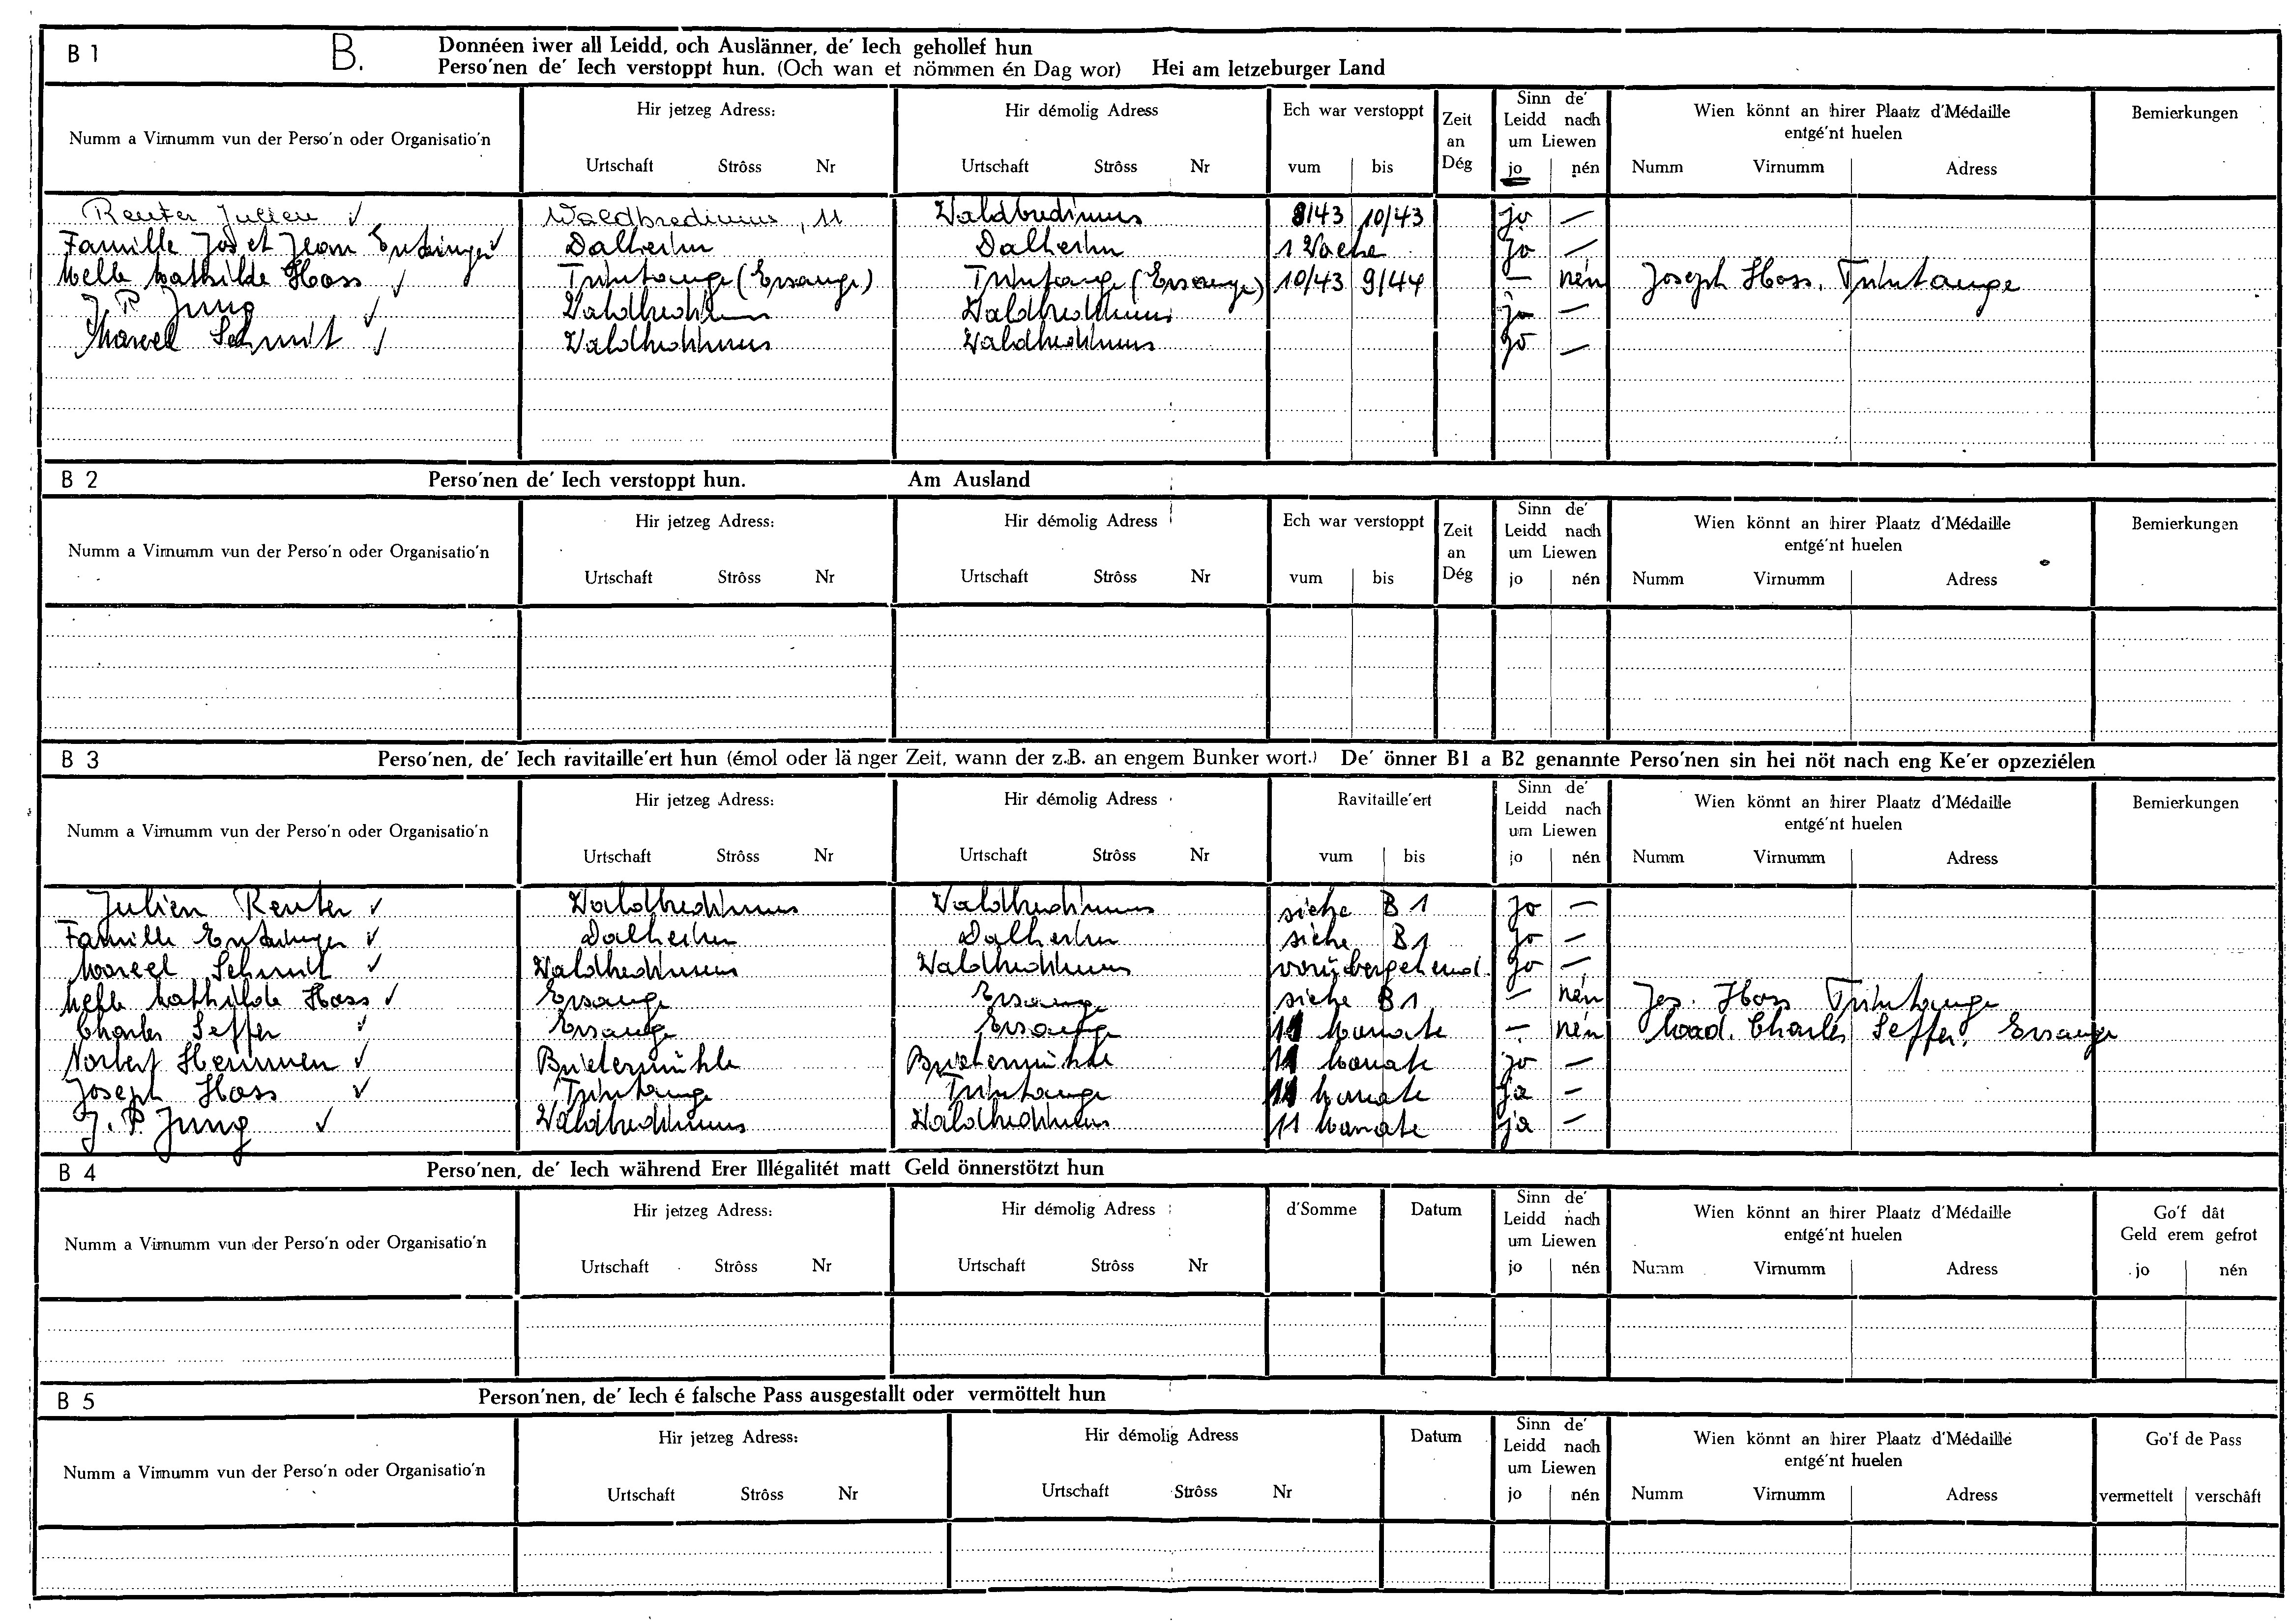 B 1 B. Donnéen iwer all Leidd, och Auslänner, de' Iech gehollef hun
Perso'nen de' Iech verstoppt hun. (Och wan et nömmen én Dag wor) Hei am letzeburger Land
Numm a Virnumm vun der Perso'n oder Organisatio'n
Hir jetzeg Adress:
Urtschaft Strôss Nr
Hir démolig Adress
Urtschaft Strôss Nr
Ech war verstoppt
vum bis
Zeit
an
Dég
Sinn de'
Leidd nach
um Liewen
jo nén
Wien könnt an hirer Plaatz d'Médaille
entgé'nt huelen
Numm Virnumm Adress
Bemierkungen
Reuter Julien ✓ Waldbredimus, 11 Waldbredimus 8/43 10/43 jo —
Famille Jos et Jean ✓ Dalheim Dalheim 1 Woche jo —
Melle Mathilde Hoss ✓ Trintange (Ersange) Trintange (Ersange) 10/43 9/44 — nén Joseph Hoss, Trintange
J. P. Jung ✓ Waldbredimus Waldbredimus jo —
Marcel Schmit ✓ Waldbredimus Waldbredimus jo —
B 2 Perso'nen de' Iech verstoppt hun. Am Ausland
Numm a Virnumm vun der Perso'n oder Organisatio'n
Hir jetzeg Adress:
Urtschaft Strôss Nr
Hir démolig Adress
Urtschaft Strôss Nr
Ech war verstoppt
vum bis
Zeit
an
Dég
Sinn de'
Leidd nach
um Liewen
jo nén
Wien könnt an hirer Plaatz d'Médaille
entgé'nt huelen
Numm Virnumm Adress
Bemierkungen
B 3 Perso'nen, de' Iech ravitaille'ert hun (émol oder länger Zeit, wann der z.B. an engem Bunker wort.) De' önner B1 a B2 genannte Perso'nen sin hei nöt nach eng Ke'er opzeziélen
Numm a Virnumm vun der Perso'n oder Organisatio'n
Hir jetzeg Adress:
Urtschaft Strôss Nr
Hir démolig Adress
Urtschaft Strôss Nr
Ravitaille'ert
vum bis
Sinn de'
Leidd nach
um Liewen
jo nén
Wien könnt an hirer Plaatz d'Médaille
entgé'nt huelen
Numm Virnumm Adress
Bemierkungen
Julien Reuter ✓ Waldbredimus Waldbredimus siehe B 1 jo —
Famille ✓ Dalheim Dalheim siehe B 1 jo —
Marcel Schmit ✓ Waldbredimus Waldbredimus vorübergehend jo —
Melle Mathilde Hoss ✓ Ersange Ersange siehe B 1 — nén Jos. Hoss Trintange
Charles Seffer ✓ Ersange Ersange 11 Monate — nén Mad. Charles Seffer, Ersange
Norbert Hemmen ✓ Buchermühle 11 Monate jo —
Joseph Hoss ✓ Trintange Trintange 11 Monate ja —
J. P. Jung ✓ Waldbredimus Waldbredimus 11 Monate ja —
B 4 Perso'nen, de' Iech während Erer Illégalitét matt Geld önnerstötzt hun
Numm a Virnumm vun der Perso'n oder Organisatio'n
Hir jetzeg Adress:
Urtschaft Strôss Nr
Hir démolig Adress
Urtschaft Strôss Nr
d'Somme
Datum
Sinn de'
Leidd nach
um Liewen
jo nén
Wien könnt an hirer Plaatz d'Médaille
entgé'nt huelen
Numm Virnumm Adress
Go'f dât
Geld erem gefrot
jo nén
B 5 Person'nen, de' Iech é falsche Pass ausgestallt oder vermöttelt hun
Numm a Virnumm vun der Perso'n oder Organisatio'n
Hir jetzeg Adress:
Urtschaft Strôss Nr
Hir démolig Adress
Urtschaft Strôss Nr
Datum
Sinn de'
Leidd nach
um Liewen
jo nén
Wien könnt an hirer Plaatz d'Médaille
entgé'nt huelen
Numm Virnumm Adress
Go'f de Pass
vermettelt verschâft